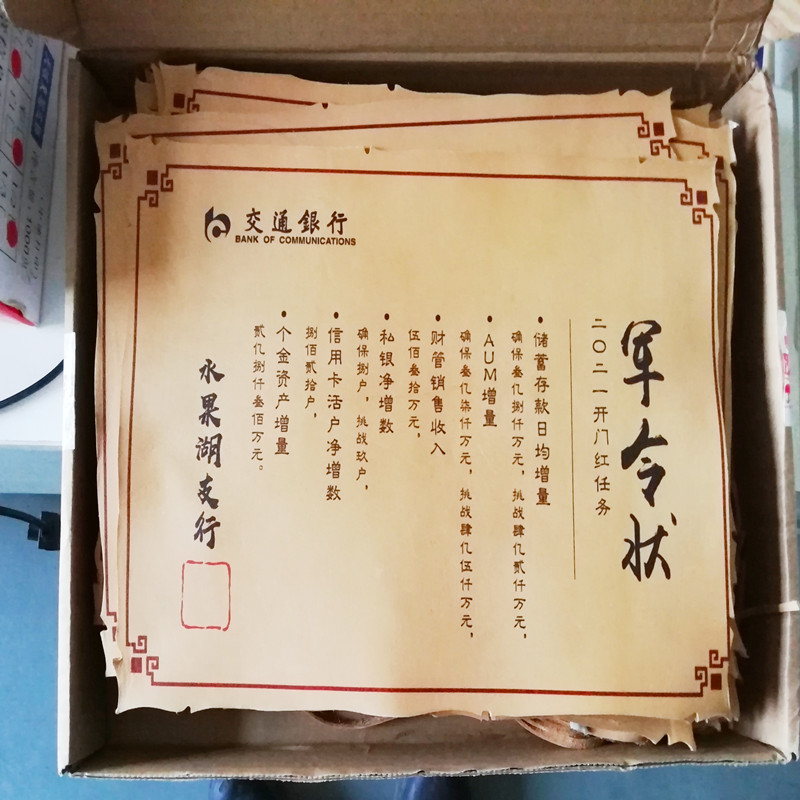 交通銀行
BANK OF COMMUNICATIONS
军令状
二〇二一开门红任务
•储蓄存款日均增量
确保叁亿捌仟万元，挑战肆亿贰仟万元，
•AUM增量
确保叁亿柒仟万元，挑战肆亿伍仟万元，
•财管销售收入
伍佰叁拾万元，
•私银净增数
确保捌户，挑战玖户，
•信用卡活户净增数
捌佰贰拾户，
•个金资产增量
贰亿捌仟叁佰万元。
水果湖支行